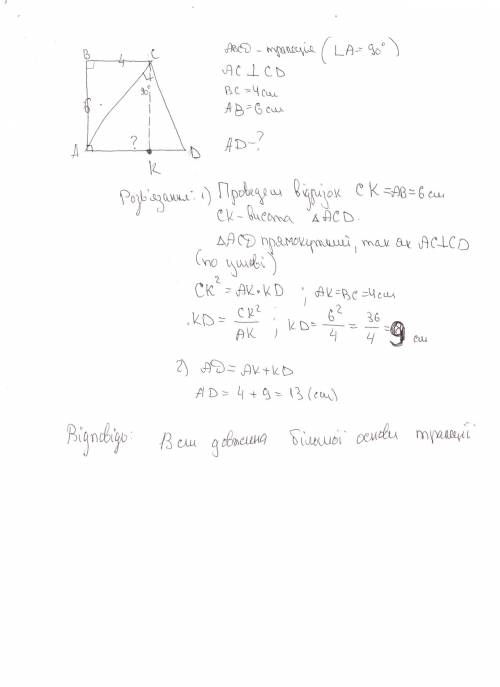 B C
4
6
90°
?
A K D
ABCD - трапеція (∟A = 90°)
AC ⊥ CD
BC = 4 см
AB = 6 см
AD - ?
Розв'язання: 1) Проведем відрізок CK = AB = 6 см
CK - висота △ACD.
△ACD прямокутний, так як AC⊥CD
(по умові)
CK² = AK • KD ; AK = BC = 4 см
KD = CK²/AK ; KD = 6²/4 = 36/4 = 9 см
2) AD = AK + KD
AD = 4 + 9 = 13 (см)
Відповідь: 13 см довжина більшої основи трапеції